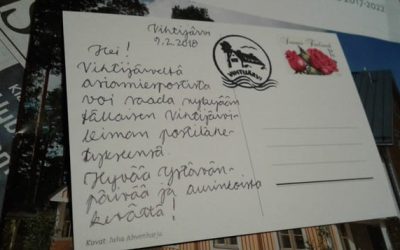 2017-2022
Vihtijärvi
9.2.2018
Hei!
Vihtijärveltä
asiamiespostista
voi saada nykyään
tällaisen Vihtijärvi-
leiman postilähe-
tykseensä.
Hyvää ystävän-
päivää ja aurinkoista
kevättä!
VIHTIJÄRVI
Suomi Finland
Kuvat: Juha Ahvenharju